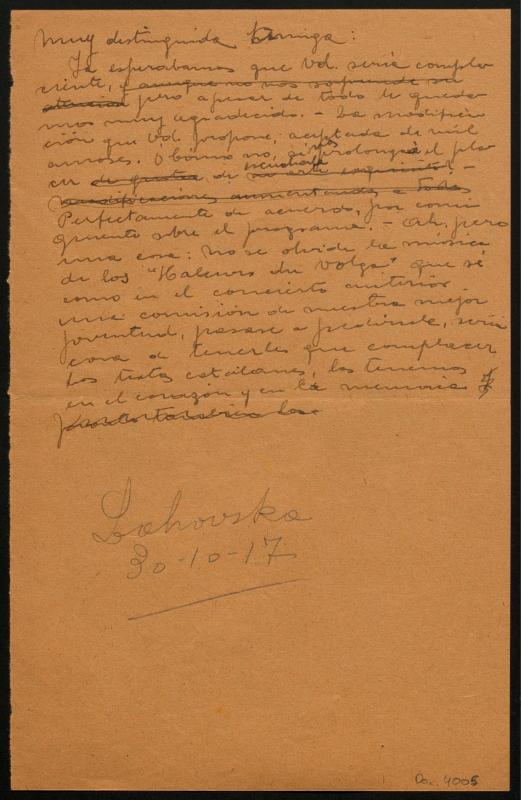 Muy distinguida amiga:
Ya esperabamos que Vd. seria compla-
ciente, y aunque no nos sorprende su
atencion pero apesar de todo le queda-
mos muy agradecido. – La modifica-
ción que Vd. propone, aceptada de mil
amores. Ó bámo no, si prolonga el pla-
cer de gustar de escucharle su arte exquisito! –
modificaciones aumentadas a todas
Perfectamente de acuerdo, por consi-
guiente sobre el programa. – Ah, pero
una cosa: no se olvide la música
de los "Haleurs du Volga" que si
como en el concierto anterior
una comisión de nuestra mejor
joventud, pasase a pedirsele, seria
cosa de tenerles que complacer
Los textos catalanes, los tenemos
en el corazón y en la memoria
pronto tambien los
Lahovska
30-10-17
Do. 4005